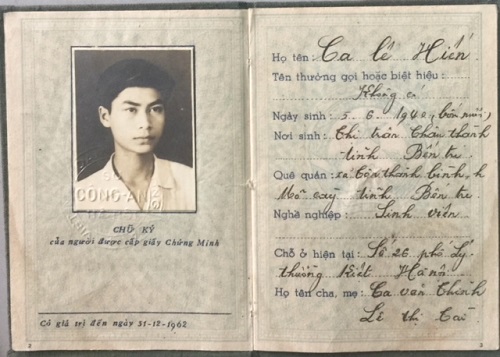 CÔNG AN
CHỮ KÝ
của người được cấp giấy Chứng Minh
Có giá trị đến ngày 31-12-1962
2
Họ tên: Ca Lê Hiến
Tên thường gọi hoặc biệt hiệu:
Không có
Ngày sinh: 5. 6. 1940 (bốn mươi)
Nơi sinh: Thị trấn Châu thành
tỉnh Bến tre
Quê quán: xã Tân thành bình, h
Mỏ cày tỉnh Bến tre
Nghề nghiệp: Sinh viên
Chỗ ở hiện tại: Số 26 phố Lý
thường Kiệt Hà nội
Họ tên cha, mẹ: Ca văn Thỉnh
Lê thị
3